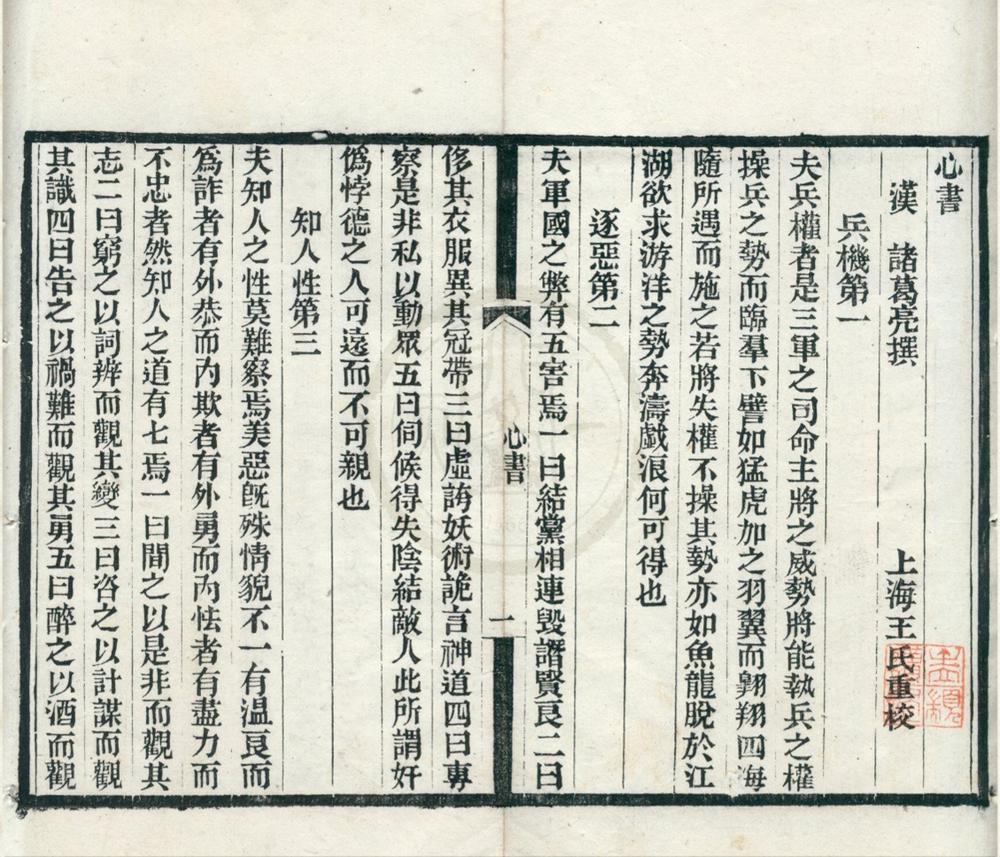 心書
漢　諸葛亮撰　上海王氏重校
兵機第一
夫兵權者是三軍之司命主將之威勢將能執兵之權
操兵之勢而臨羣下譬如猛虎加之羽翼而翺翔四海
隨所遇而施之若將失權不操其勢亦如魚龍脫於江
湖欲求游洋之勢奔濤戲浪何可得也
逐惡第二
夫軍國之弊有五害焉一曰結黨相連毀譖賢良二曰
心書
一
侈其衣服異其冠帶三曰虛誇妖術詭言神道四曰專
察是非私以動眾五曰伺候得失陰結敵人此所謂奸
僞悖德之人可遠而不可親也
知人性第三
夫知人之性莫難察焉美惡旣殊情貌不一有温良而
爲詐者有外恭而內欺者有外勇而內怯者有盡力而
不忠者然知人之道有七焉一曰間之以是非而觀其
志二曰窮之以詞辨而觀其變三曰咨之以計謀而觀
其識四曰告之以禍難而觀其勇五曰醉之以酒而觀